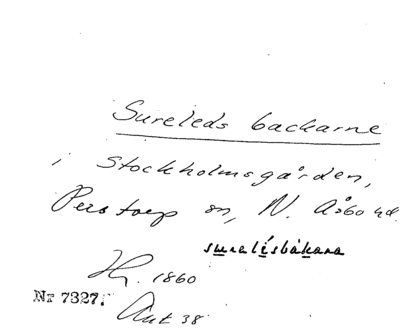 Sureleds backarne
i Stockholmsgården,
Perstorp sn, N. Åsbo hd.
surelísbàkana
H. 1860
Nr 7327. Ant 38